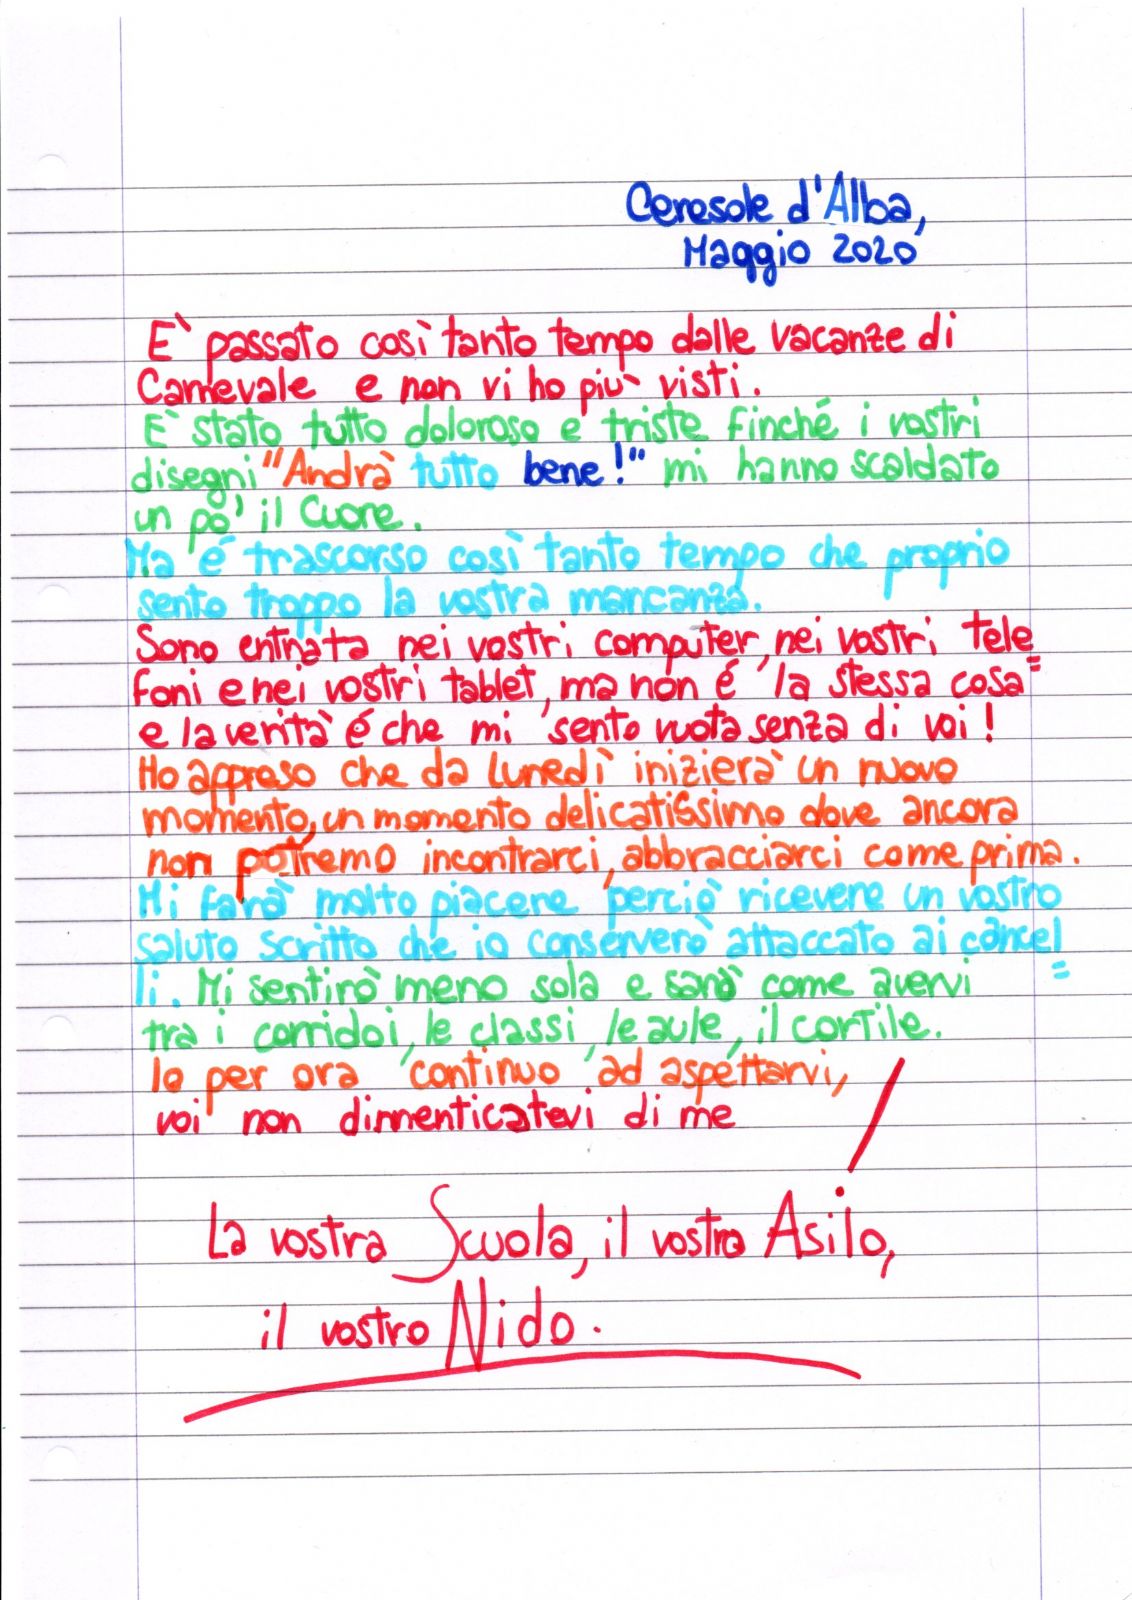 Ceresole d'Alba,
Maggio 2020
E' passato così tanto tempo dalle vacanze di
Carnevale e non vi ho più visti.
E' stato tutto doloroso e triste finché i vostri
disegni "Andrà tutto bene!" mi hanno scaldato
un po' il cuore.
Ma é trascorso così tanto tempo che proprio
sento troppo la vostra mancanza.
Sono entrata nei vostri computer, nei vostri tele=
foni e nei vostri tablet, ma non é la stessa cosa
e la verità é che mi sento vuota senza di voi!
Ho appreso che da lunedì inizierà un nuovo
momento, un momento delicatissimo dove ancora
non potremo incontrarci, abbracciarci come prima.
Mi farà molto piacere perciò ricevere un vostro
saluto scritto che io conserverò attaccato ai cancel=
li. Mi sentirò meno sola e sarà come avervi
tra i corridoi, le classi, le aule, il cortile.
Io per ora continuo ad aspettarvi,
voi non dimenticatevi di me!
La vostra Scuola, il vostro Asilo,
il vostro Nido.